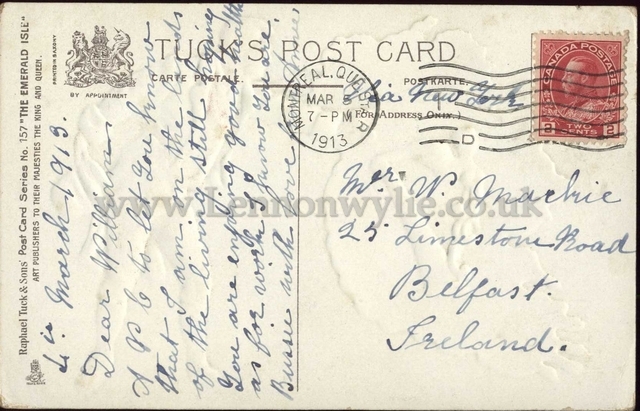 TUCK'S POST CARD
CARTE POSTALE.
POSTKARTE.
BY APPOINTMENT
PRINTED IN SAXONY
Raphael Tuck & Sons' Post Card Series No. 157 "THE EMERALD ISLE"
ART PUBLISHERS TO THEIR MAJESTIES THE KING AND QUEEN.
(FOR ADDRESS ONLY.)
MONTREAL, QUE
MAR
7 - PM
1913
D
CANADA POSTAGE
2 TWO CENTS 2
via New York
Mr. W. Mackie
25 Limestone Road
Belfast.
Ireland.
March 1913.
Dear William
A P C to let you know
that I am on the lands
of the living still hoping
you are enjoying good health
as for work I know you are
Bussie with love
www.Lennonwylie.co.uk